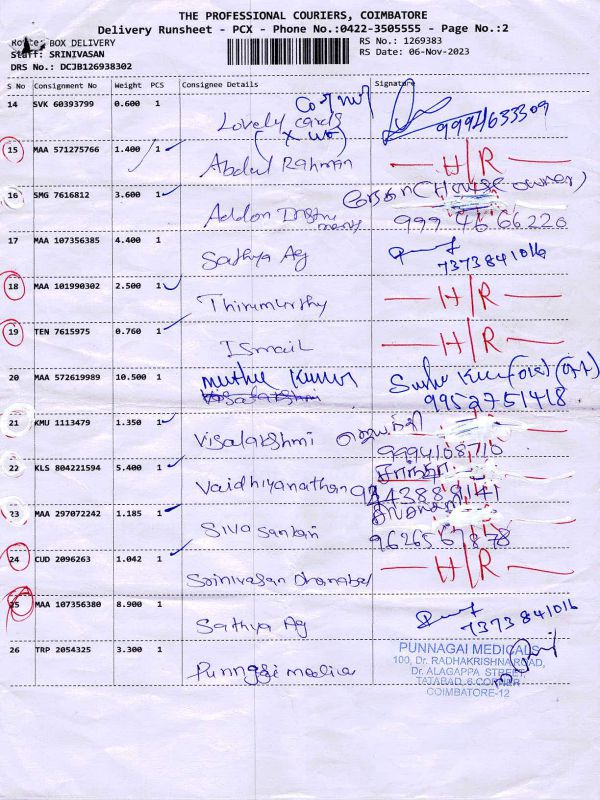 THE PROFESSIONAL COURIERS, COIMBATORE
Delivery Runsheet - PCX - Phone No.:0422-3505555 - Page No.:2
Route: BOX DELIVERY
RS No.: 1269383
Staff: SRINIVASAN
RS Date: 06-Nov-2023
DRS No.: DCJB126938302
S No Consignment No Weight PCS Consignee Details Signature
14 SVK 60393799 0.600 1 Lovely cards 9994633309
15 MAA 571275766 1.400 1 Abdul Rahman H/R
16 SMG 7616812 3.600 1 Addon (House owner)
999 46 66220
17 MAA 107356385 4.400 1 Sathya Ag
7373841016
18 MAA 101990302 2.500 1 Thirumurthy H/R
19 TEN 7615975 0.760 1 Ismail H/R
20 MAA 572619989 10.500 1 Muthu Kumar
Visalakshmi 9952751418
21 KMU 1113479 1.350 1 Visalakshmi
9994108710
22 KLS 804221594 5.400 1 Vaidhiyanathan
23 MAA 297072242 1.185 1 Siva Sankari
24 CUD 2096263 1.042 1 H/R
25 MAA 107356380 8.900 1 Sathya Ag 7373841016
26 TRP 2054325 3.300 1
PUNNAGAI MEDICALS
100, Dr. RADHAKRISHNA ROAD,
Dr. ALAGAPPA STREET
TATABAD 6 CORNER
COIMBATORE-12